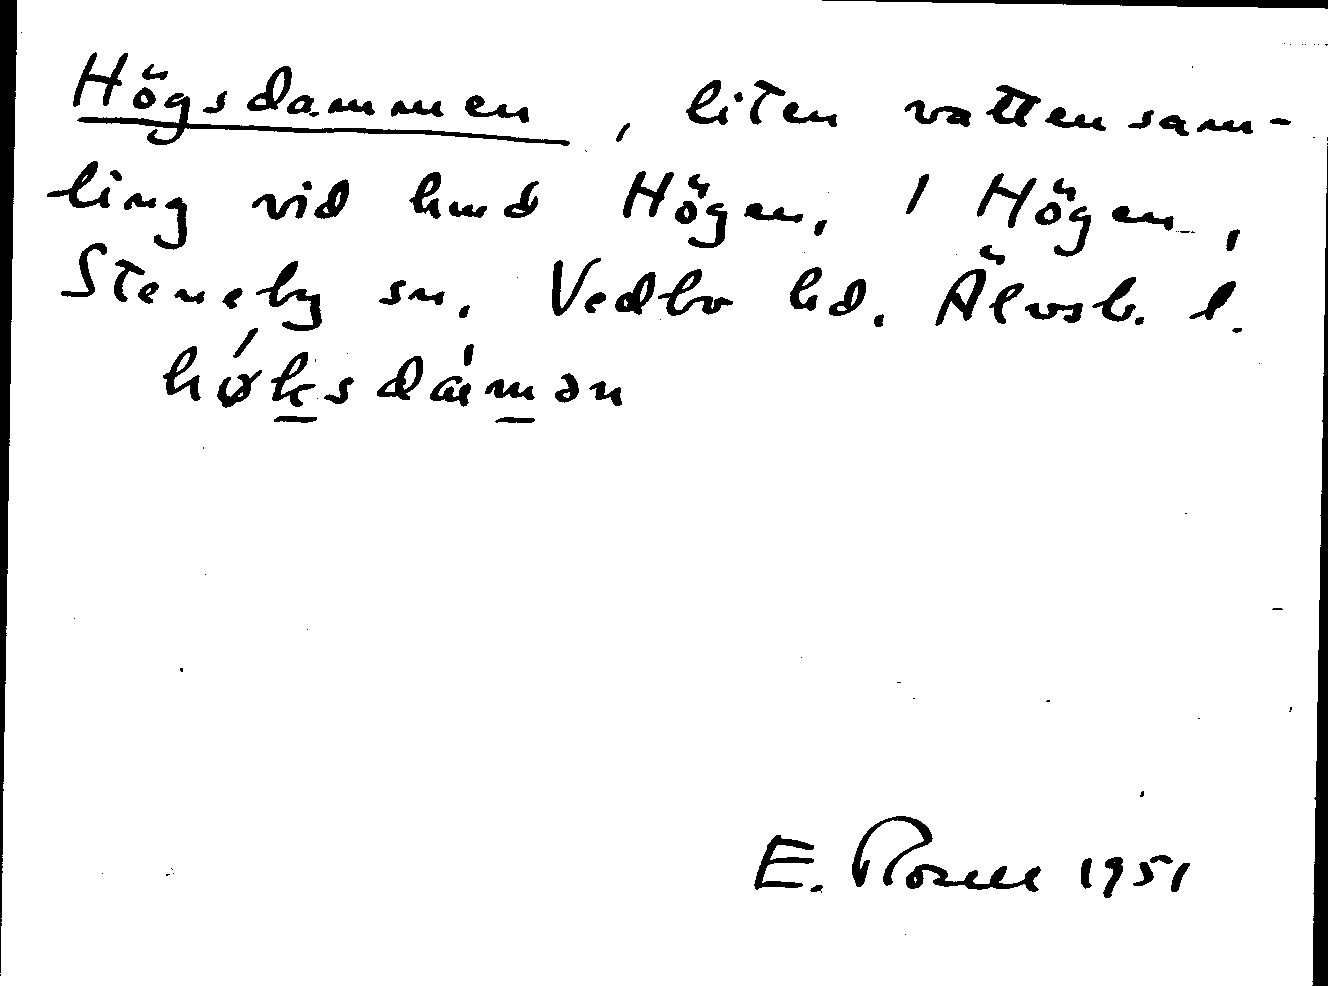 Högsdammen, liten vattensam-
ling vid hmd Högen, 1 Högen,
Steneby sn. Vedbo hd. Älvsb. l.
hǿksdàmən
E. Rosell 1951